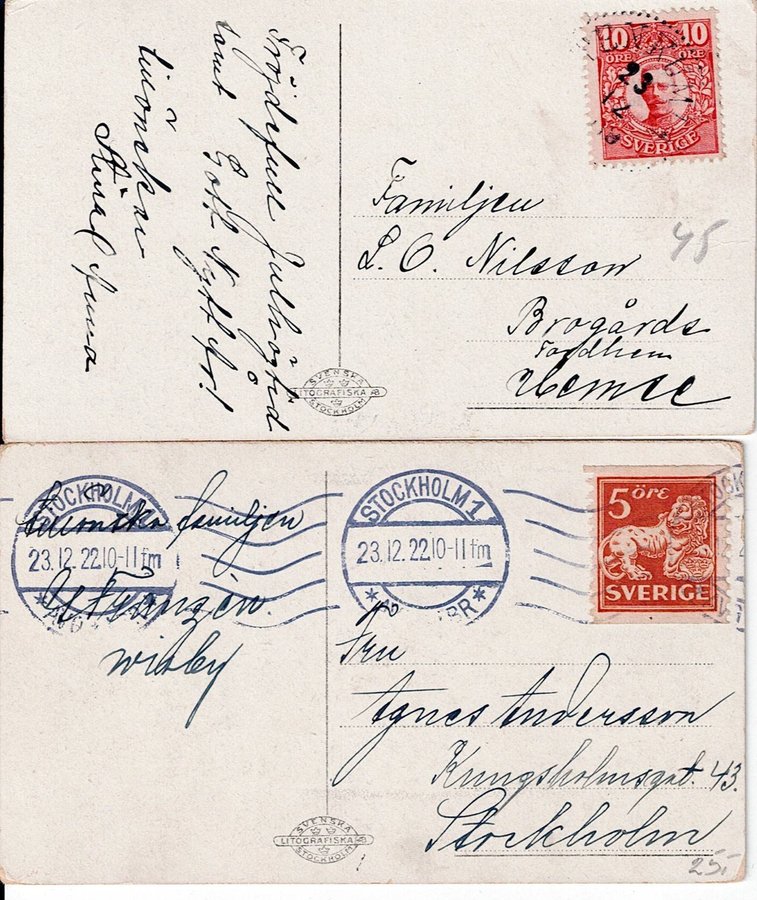 Fröjdefull Julhögtid
samt Gott Nytt År!
tillönskar
Stina
Anna
10 10
ÖRE ÖRE
SVERIGE
23
Familjen
L. O. Nilsson
Brogårds
Fardhem
Hemse
45
SVENSKA
LITOGRAFISKA AB
STOCKHOLM
STOCKHOLM 1
23.12.22 10-11 fm
STOCKHOLM 1
23.12.22 10-11 fm
5 öre
SVERIGE
Tillönskar familjen
Wisby
Fru
Agnes Andersson
Kungsholmsgat. 43.
Stockholm
25:-
SVENSKA
LITOGRAFISKA AB
STOCKHOLM